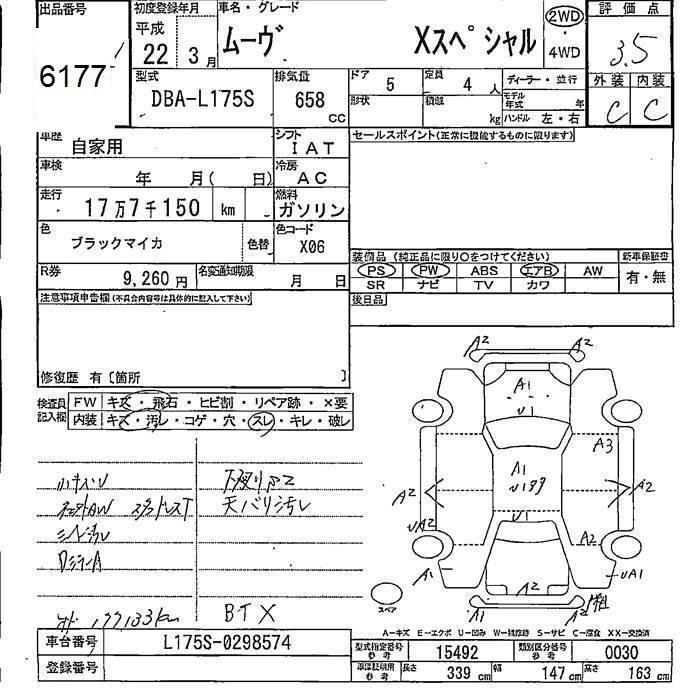 出品番号
6177
初度登録年月
平成
22 3月
車名・グレード
ムーヴ Xスペシャル
2WD
・
4WD
評価点
3.5
外装 内装
C C
型式
DBA-L175S
排気量
658
CC
ドア
5
定員
4 人
ディーラー・並行
形状
積載
kg
モデル
年式 年
ハンドル 左・右
車歴
自家用
シフト
IAT
セールスポイント(正常に機能するものに限ります)
車検
年 月( 日)
冷房
AC
走行
17万7千150 km
燃料
ガソリン
色
ブラックマイカ
色替
色コード
X06
装備品 (純正品に限り○をつけてください)
新車保証書
PS PW ABS エアB AW
SR ナビ TV カワ
有・無
R券
9,260円
名変通知期限
月 日
後日品
注意事項申告欄(不具合内容等は具体的に記入して下さい)
修復歴 有〔箇所 〕
検査員
記入欄
FW キズ・飛石・ヒビ割・リペア跡・×要
内装 キズ・汚レ・コゲ・穴・スレ・キレ・破レ
小キズU
天バリ汚レ
177133km
BTX
A2
A2
A1
U1
A3
A1
A2
A2
UA2
U1
A2
A1
UA1
A2
A1
A2
スペア
A-キズ E-エクボ U-凹み W-補修跡 S-サビ C-腐食 XX-交換済
車台番号
L175S-0298574
登録番号
型式指定番号
参考
15492
類別区分番号
参考
0030
車検証明用
参考
長さ
339 cm
幅
147 cm
高さ
163 cm